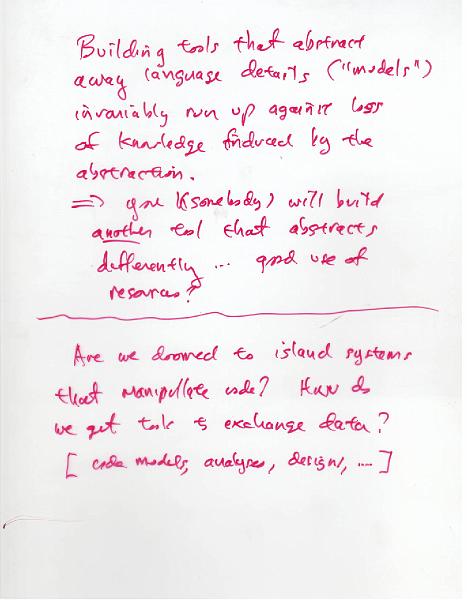 Building tools that abstract
away language details ("models")
invariably run up against loss
of knowledge induced by the
abstraction.
=> you (somebody) will build
another tool that abstracts
differently ... good use of
resources?
Are we doomed to island systems
that manipulate code? How do
we get tools to exchange data?
[ code models, analyses, designs, ... ]